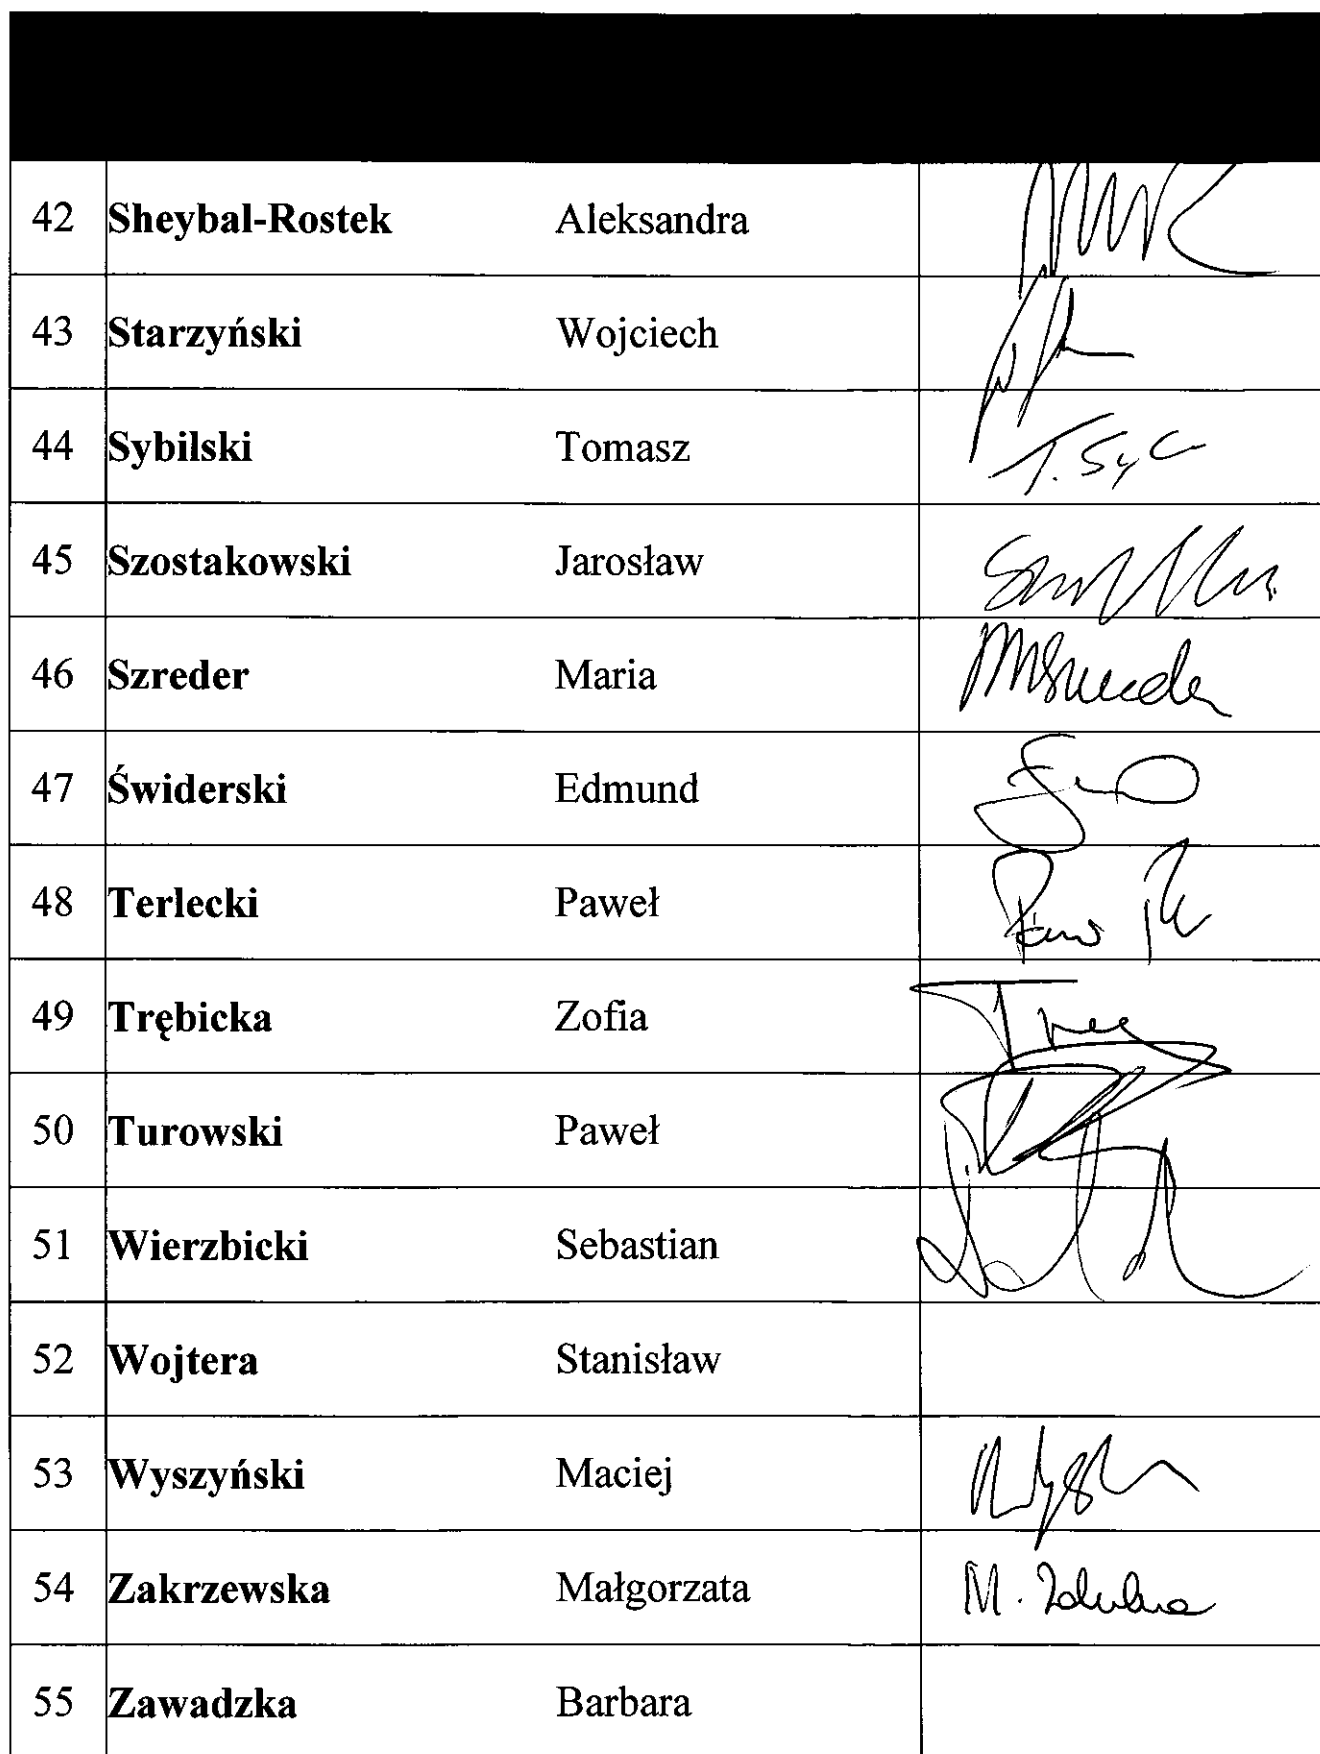 42 Sheybal-Rostek Aleksandra
43 Starzyński Wojciech
44 Sybilski Tomasz T. Sy
45 Szostakowski Jarosław
46 Szreder Maria
47 Świderski Edmund
48 Terlecki Paweł
49 Trębicka Zofia
50 Turowski Paweł
51 Wierzbicki Sebastian
52 Wojtera Stanisław
53 Wyszyński Maciej
54 Zakrzewska Małgorzata M.
55 Zawadzka Barbara